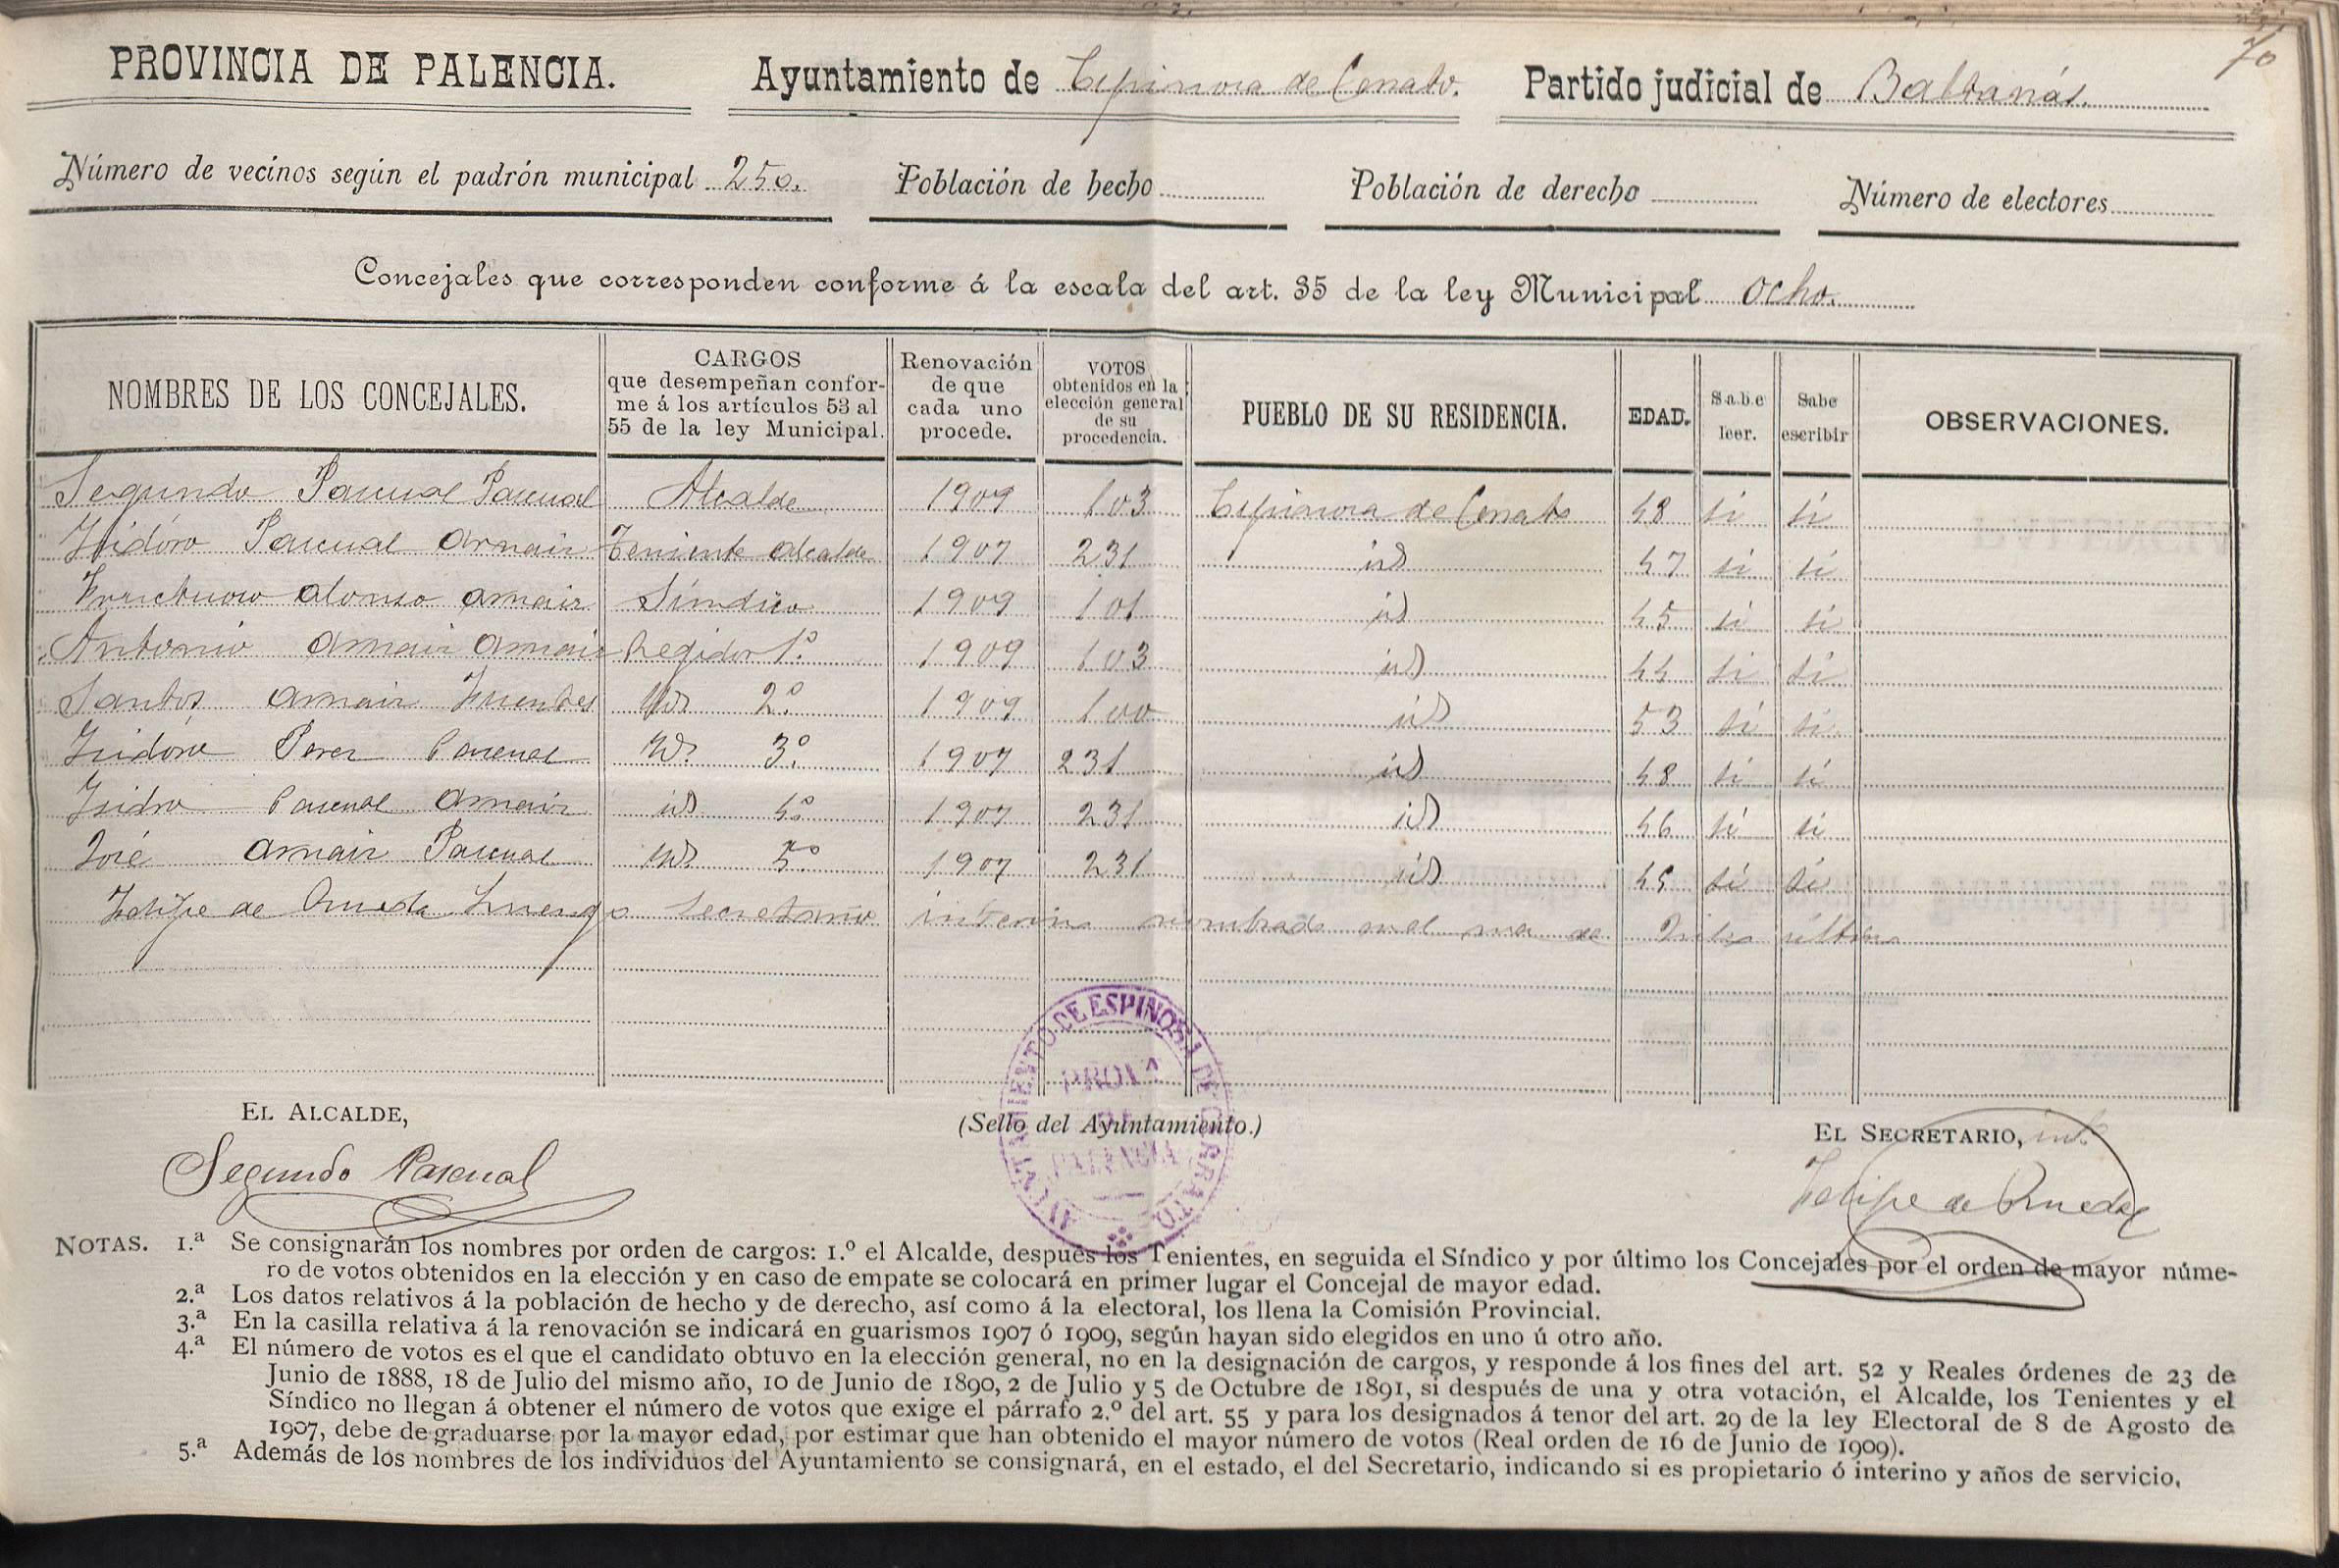 70
PROVINCIA DE PALENCIA. Ayuntamiento de Espinosa de Cerrato. Partido judicial de Baltanás.
Número de vecinos según el padrón municipal 250. Población de hecho Población de derecho Número de electores
Concejales que corresponden conforme á la escala del art. 35 de la ley Municipal ocho.
NOMBRES DE LOS CONCEJALES. CARGOS que desempeñan confor- Renovación VOTOS PUEBLO DE SU RESIDENCIA. EDAD. Sabe Sabe OBSERVACIONES.
me á los artículos 53 al de que obtenidos en la leer. escribir
55 de la ley Municipal. cada uno elección general
procede. de su
procedencia.
Segundo Pascual Pascual Alcalde 1909 103 Espinosa de Cerrato 48 si si
Isidóro Pascual Arnaiz Teniente Alcalde 1907 231 id 47 si si
Fructuoso Alonso Arnaiz Síndico 1909 101 id 45 si si
Antonio Arnaiz Arnaiz Regidor 1.º 1909 103 id 44 si si
Santos Arnaiz Fuentes Id 2.º 1909 100 id 53 si si
Isidóro Perez Pascual Id. 3.º 1907 231 id 48 si si
Isidro Pascual Arnaiz id 4.º 1907 231 id 46 si si
José Arnaiz Pascual Id 5.º 1907 231 id 45 si si
Felipe de Orueda Luengo Secretario interino nombrado en el mes de Julio último
AYUNTAMIENTO DE ESPINOSA DE CERRATO.
PROVA
DE
PALENCIA
EL ALCALDE, (Sello del Ayuntamiento.) EL SECRETARIO, int.º
Segundo Pascual Felipe de Orueda
NOTAS. 1.ª Se consignarán los nombres por orden de cargos: 1.º el Alcalde, después los Tenientes, en seguida el Síndico y por último los Concejales por el orden de mayor núme-
ro de votos obtenidos en la elección y en caso de empate se colocará en primer lugar el Concejal de mayor edad.
2.ª Los datos relativos á la población de hecho y de derecho, así como á la electoral, los llena la Comisión Provincial.
3.ª En la casilla relativa á la renovación se indicará en guarismos 1907 ó 1909, según hayan sido elegidos en uno ú otro año.
4.ª El número de votos es el que el candidato obtuvo en la elección general, no en la designación de cargos, y responde á los fines del art. 52 y Reales órdenes de 23 de
Junio de 1888, 18 de Julio del mismo año, 10 de Junio de 1890, 2 de Julio y 5 de Octubre de 1891, si después de una y otra votación, el Alcalde, los Tenientes y el
Síndico no llegan á obtener el número de votos que exige el párrafo 2.º del art. 55 y para los designados á tenor del art. 29 de la ley Electoral de 8 de Agosto de
1907, debe de graduarse por la mayor edad, por estimar que han obtenido el mayor número de votos (Real orden de 16 de Junio de 1909).
5.ª Además de los nombres de los individuos del Ayuntamiento se consignará, en el estado, el del Secretario, indicando si es propietario ó interino y años de servicio.